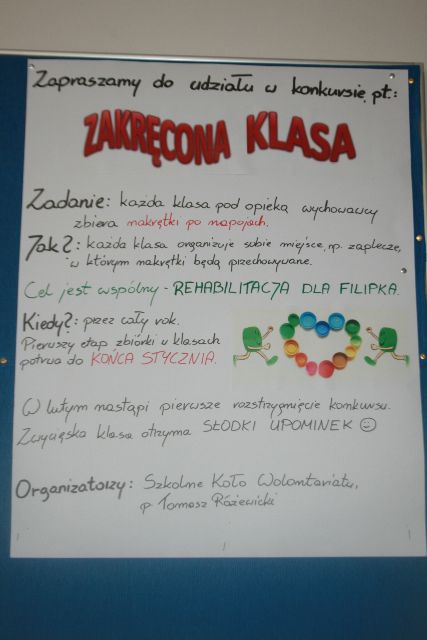 Zapraszamy do udziału w konkursie pt.:
ZAKRĘCONA KLASA
Zadanie: każda klasa pod opieką wychowawcy
zbiera makrętki po napojach.
Jak?: każda klasa organizuje sobie miejsce, np. zaplecze,
w którym makrętki będą przechowywane.
Cel jest wspólny - REHABILITACJA DLA FILIPKA.
Kiedy?: przez cały rok.
Pierwszy etap zbiórki w klasach
potrwa do KOŃCA STYCZNIA.
W lutym nastąpi pierwsze rozstrzygnięcie konkursu.
Zwycięska klasa otrzyma SŁODKI UPOMINEK ☺
Organizatorzy: Szkolne Koło Wolontariatu,
p. Tomasz Różewicki